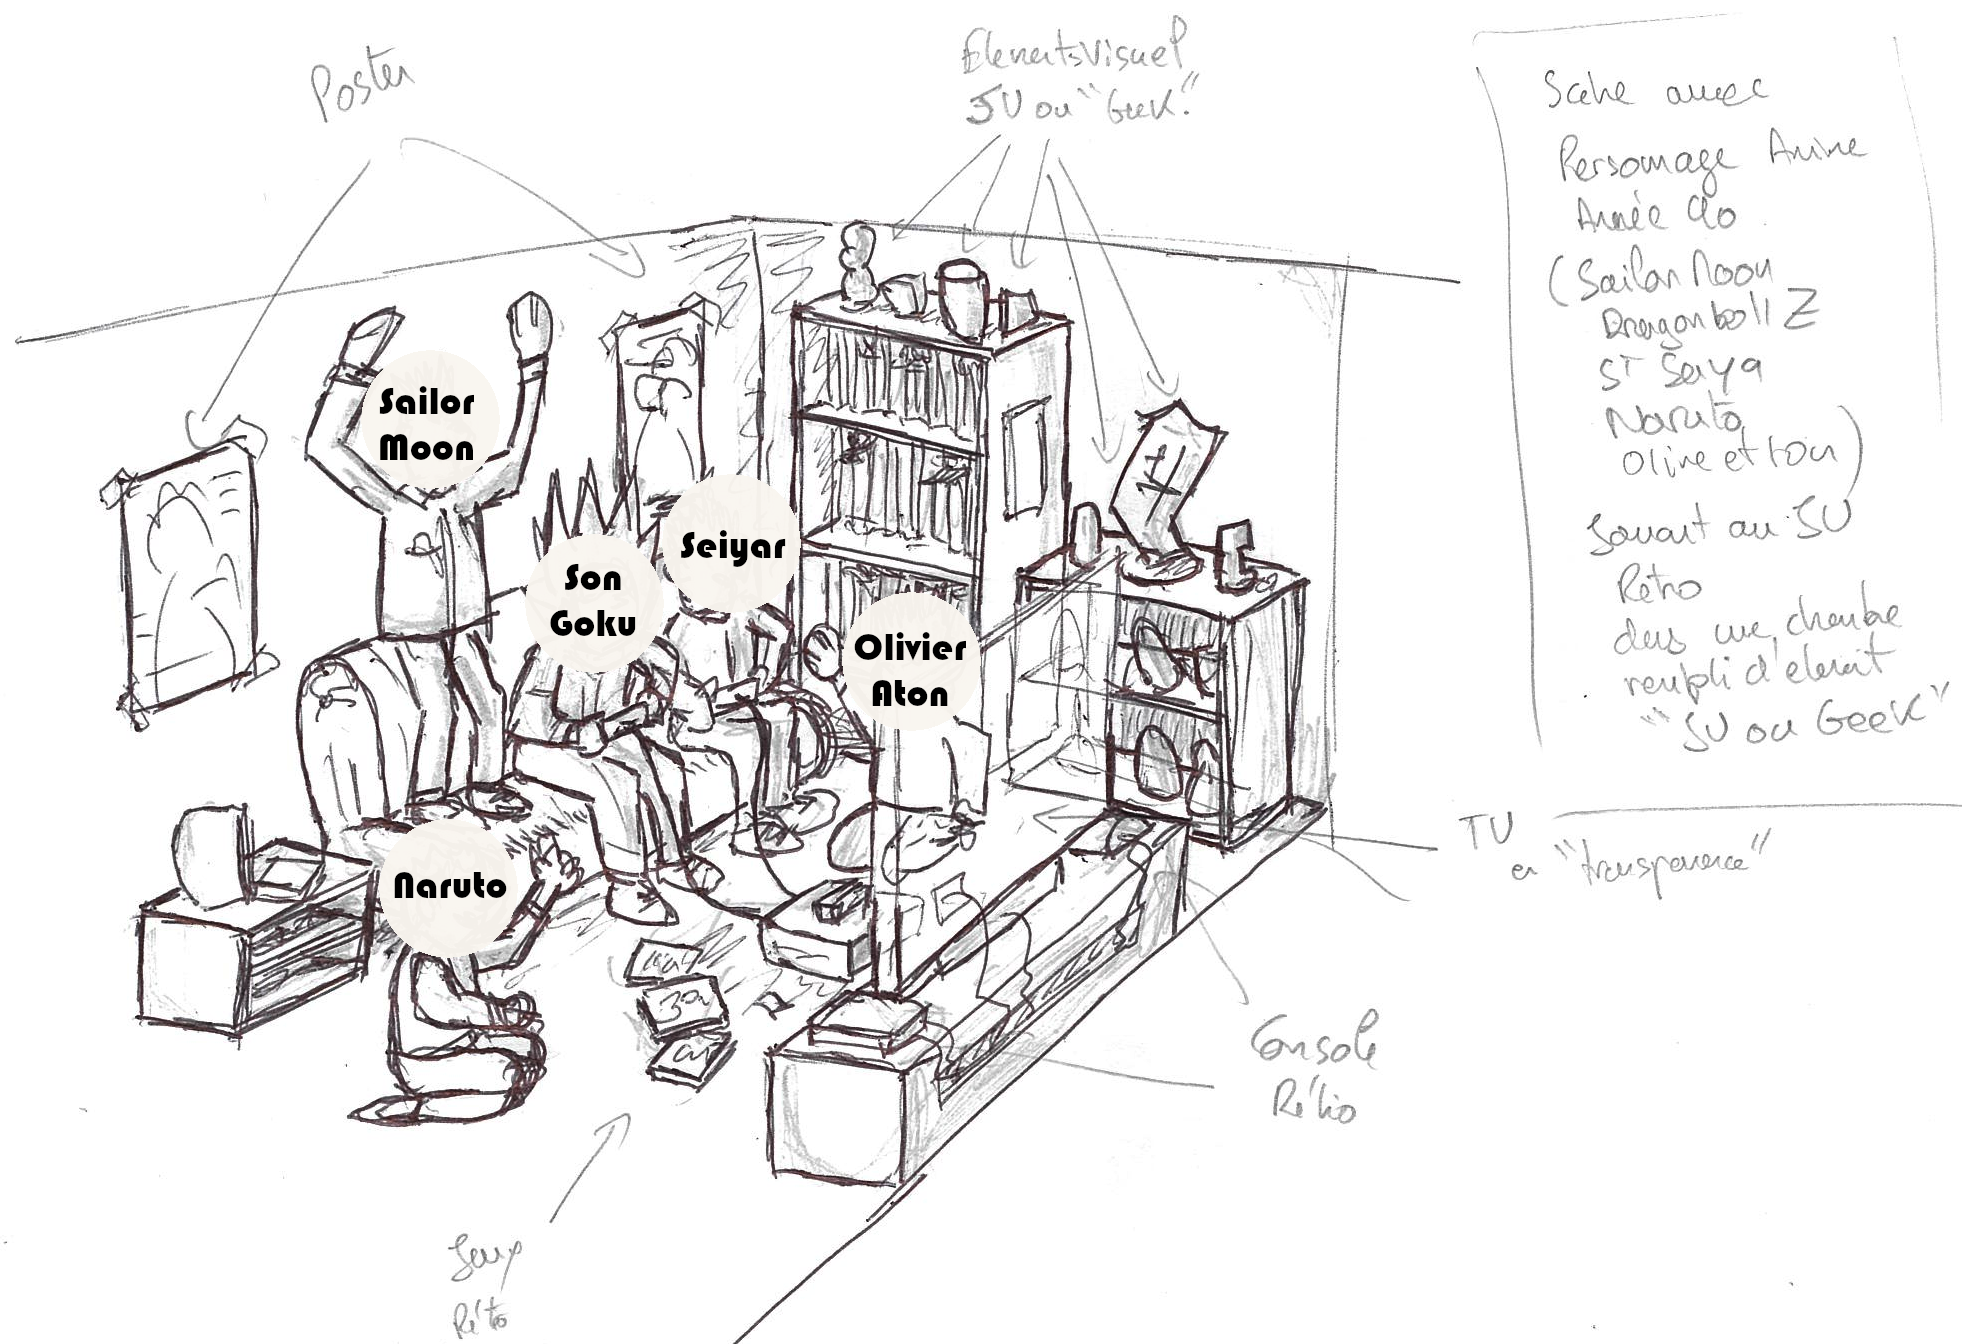 Poster
Elements Visuel
JV ou "Geek"
Scène avec
Personnage Anime
Année 90
(Sailor Moon
Dragon ball Z
ST Seiya
Naruto
Olive et Tom)
Jouant au JV
Rétro
dans une chambre
rempli d'element
"JV ou Geek"
Sailor
Moon
Son
Goku
Seiyar
Olivier
Aton
Naruto
TV
en "transparence"
Console
Rétro
Jeux
Rétro